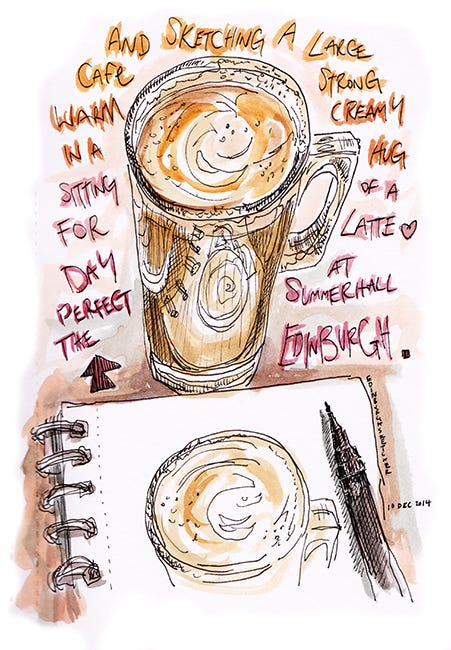 THE
PERFECT
DAY
FOR
SITTING
IN A
WARM
CAFE
AND SKETCHING A LARGE
STRONG
CREAMY
HUG
OF A
LATTE ♥
AT
SUMMERHALL
EDINBURGH.
EDINBURGHSKETCHER
10 DEC 2014